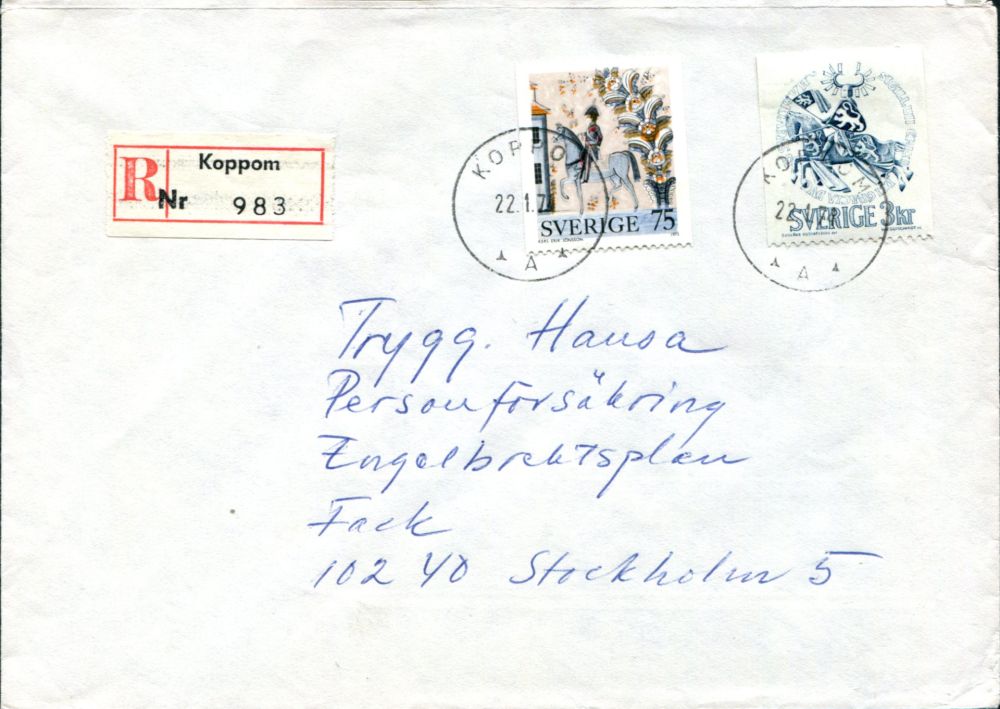 R
Koppom
Nr 983
SVERIGE 75
SVERIGE 3kr
KOPPOM
22.1.7
A
KOPPOM
22.1.7
A
Trygg. Hansa
Personförsäkring
Engelbrektsplan
Fack
102 40 Stockholm 5